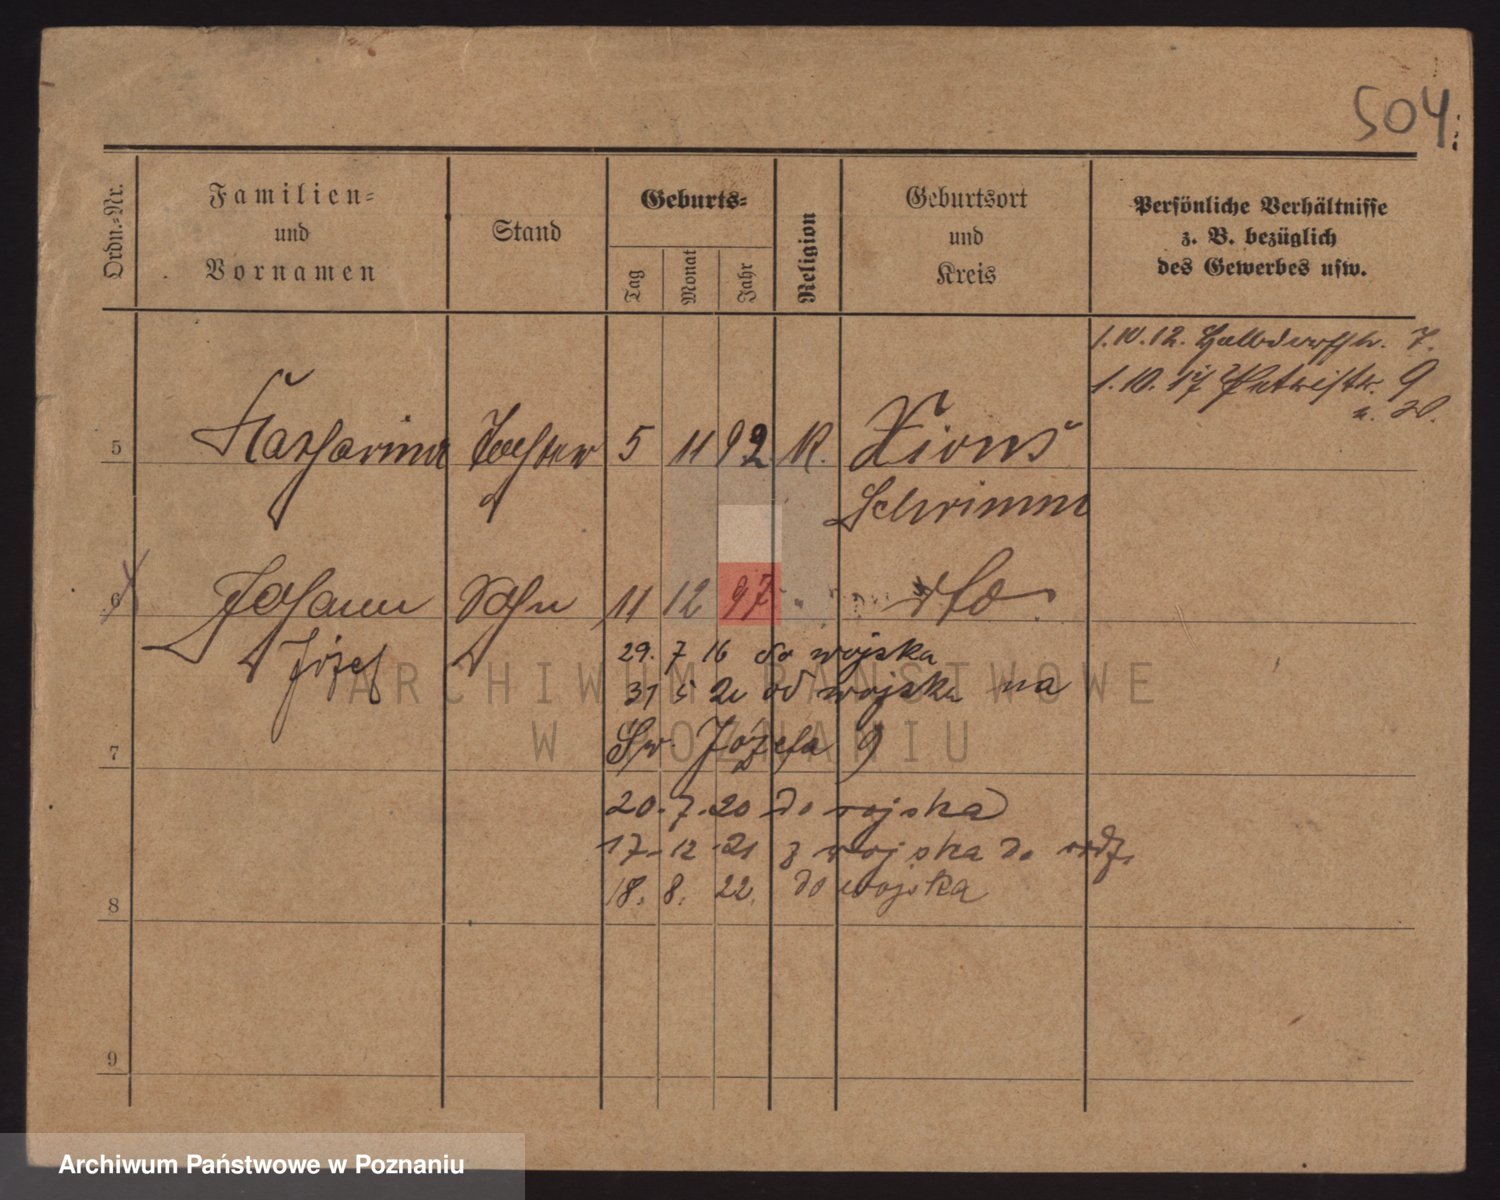 504
Ordn.=Nr.
Familien=
und
Vornamen
Stand
Geburts=
Tag
Monat
Jahr
Religion
Geburtsort
und
Kreis
Persönliche Verhältnisse
z. B. bezüglich
des Gewerbes usw.
1.10.12. Halbdorfstr. 7.
1.10.17 Petristr. 9
5 Katharina Tochter 5 11 92 K. Xions
Schrimm
6 Johann Sohn 11 12 97 dto
Józef 29. 7 16 do wojska
31 5 20 od wojska na
Św. Józefa 9
7
20. 7. 20 do wojska
17. 12 21 z wojska do rodz.
18. 8. 22. do wojska
8
9
ARCHIWUM PAŃSTWOWE
W POZNANIU
Archiwum Państwowe w Poznaniu